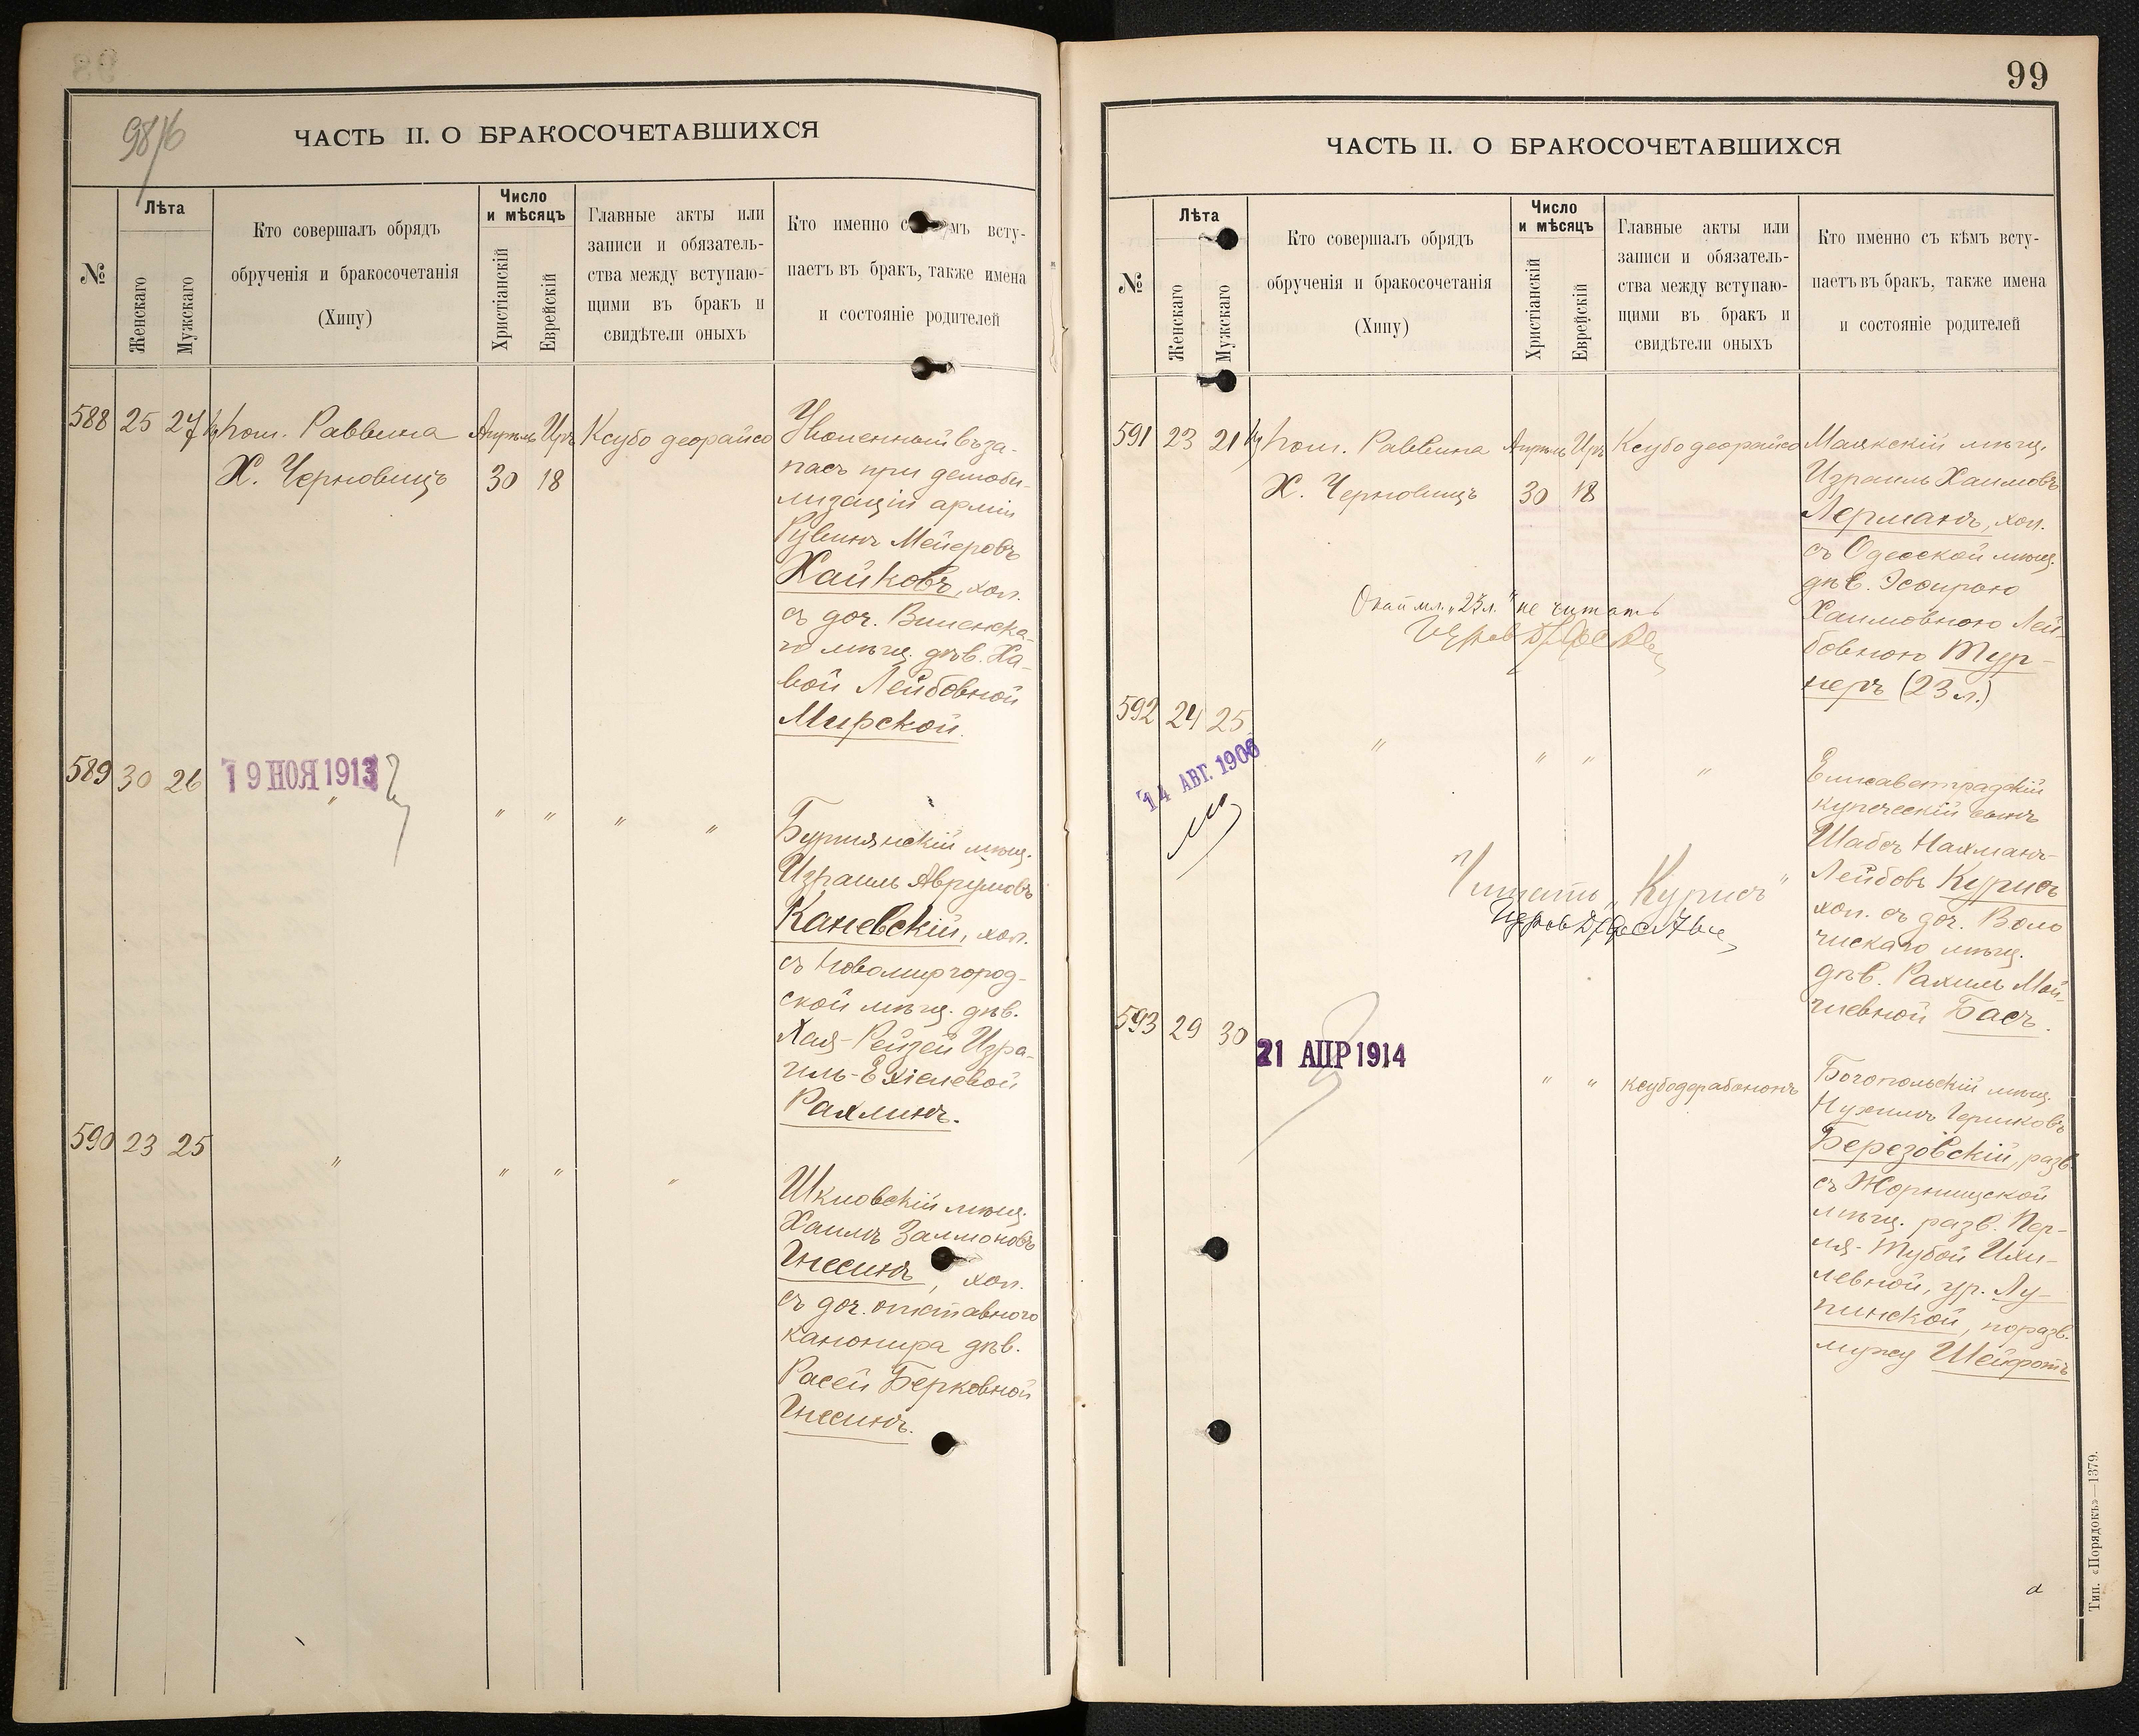 98/6
ЧАСТЬ II. О БРАКОСОЧЕТАВШИХСЯ
№
Лѣта
Женскаго
Мужскаго
Кто совершалъ обрядъ
обрученія и бракосочетанія
(Хипу)
Число
и мѣсяцъ
Христіанскій
Еврейскій
Главные акты или
записи и обязатель-
ства между вступаю-
щими въ бракъ и
свидѣтели оныхъ
Кто именно с мъ всту-
паетъ въ бракъ, также имена
и состояніе родителей
588 25 27 пом. Раввина Апрѣль Иръ Ксубо деорайсо
Х. Черновицъ 30 18
Уволенный въ за-
пасъ при демоби-
лизаціи арміи
Рувинъ Мейеровъ
Хайковъ, хол.
съ доч. Виленска-
го мѣщ. дѣв. Ха-
вой Лейбовной
Мирской.
589 30 26 19 НОЯ 1913 " " " " "
мѣщ.
Израиль Аврумовъ
Каневскій, хол.
съ Новомиргород-
ской мѣщ. дѣв.
Хая-Рейзей Изра-
иль-Ехіелевой
Рахлинъ.
590 23 25 " " " "
Шкловскій мѣщ.
Хаимъ Залмоновъ
Гнесинъ, хол.
съ доч. отставного
канонира дѣв.
Расей Берковной
Гнесинъ.
99
ЧАСТЬ II. О БРАКОСОЧЕТАВШИХСЯ
№
Лѣта
Женскаго
Мужскаго
Кто совершалъ обрядъ
обрученія и бракосочетанія
(Хипу)
Число
и мѣсяцъ
Христіанскій
Еврейскій
Главные акты или
записи и обязатель-
ства между вступаю-
щими въ бракъ и
свидѣтели оныхъ
Кто именно съ кѣмъ всту-
паетъ въ бракъ, также имена
и состояніе родителей
591 23 21 пом. Раввина Апрѣль Иръ Ксубо деорайсо
Х. Черновицъ 30 18
Маякскій мѣщ.
Израиль Хаимовъ
Лерманъ, хол.
съ Одесской мѣщ.
дѣв. Эсѳирою
Хаимовною Лей-
бовною Тур-
неръ (23 л.)
"23 л." не читать
592 24 25 " " " "
14 АВГ. 1906
Елисаветградскій
купеческій сынъ
Шабсъ Нахманъ-
Лейбовъ Курисъ
хол. съ доч. Воло
чискаго мѣщ.
дѣв. Рахиль Мой-
шевной Басъ.
Читать "Курисъ"
593 29 30 21 АПР 1914 " " Ксубодерабононъ
Богопольскій мѣщ.
Нухимъ Гершковъ
Березовскій, разв.
съ Жорнищской
мѣщ. разв. Пер-
ля-Тубой Ихи-
левной, ур. Лу-
пинской, по разв.
мужу Шейфотъ
Тип. «Порядокъ»—1379.